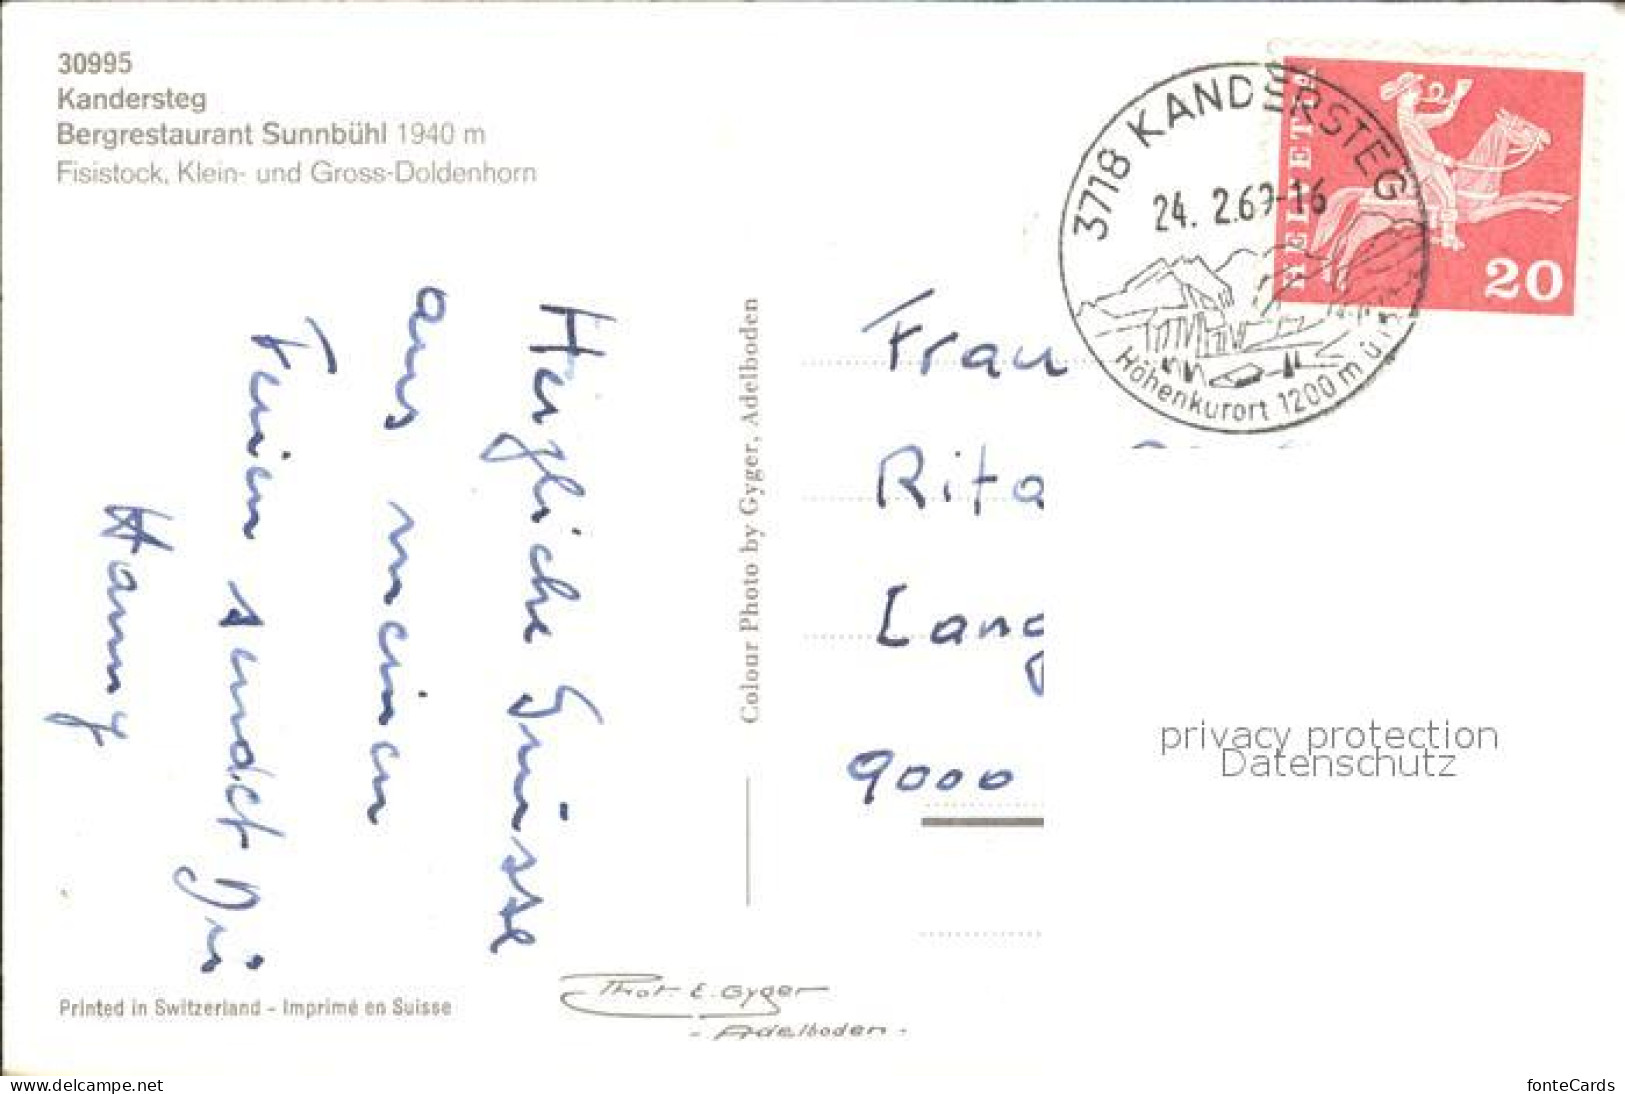 30995
Kandersteg
Bergrestaurant Sunnbühl 1940 m
Fisistock, Klein- und Gross-Doldenhorn
3718 KANDERSTEG
24. 2.69-16
Höhenkurort 1200 m ü.
HELVETIA
20
Herzliche Grüsse
aus meinen
Ferien sendet Dir
Hanny
Colour Photo by Gyger, Adelboden
Frau
Rita
Lang
9000
privacy protection
Datenschutz
Printed in Switzerland - Imprimé en Suisse
Phot. E. Gyger
- Adelboden -
www.delcampe.net
fonteCards